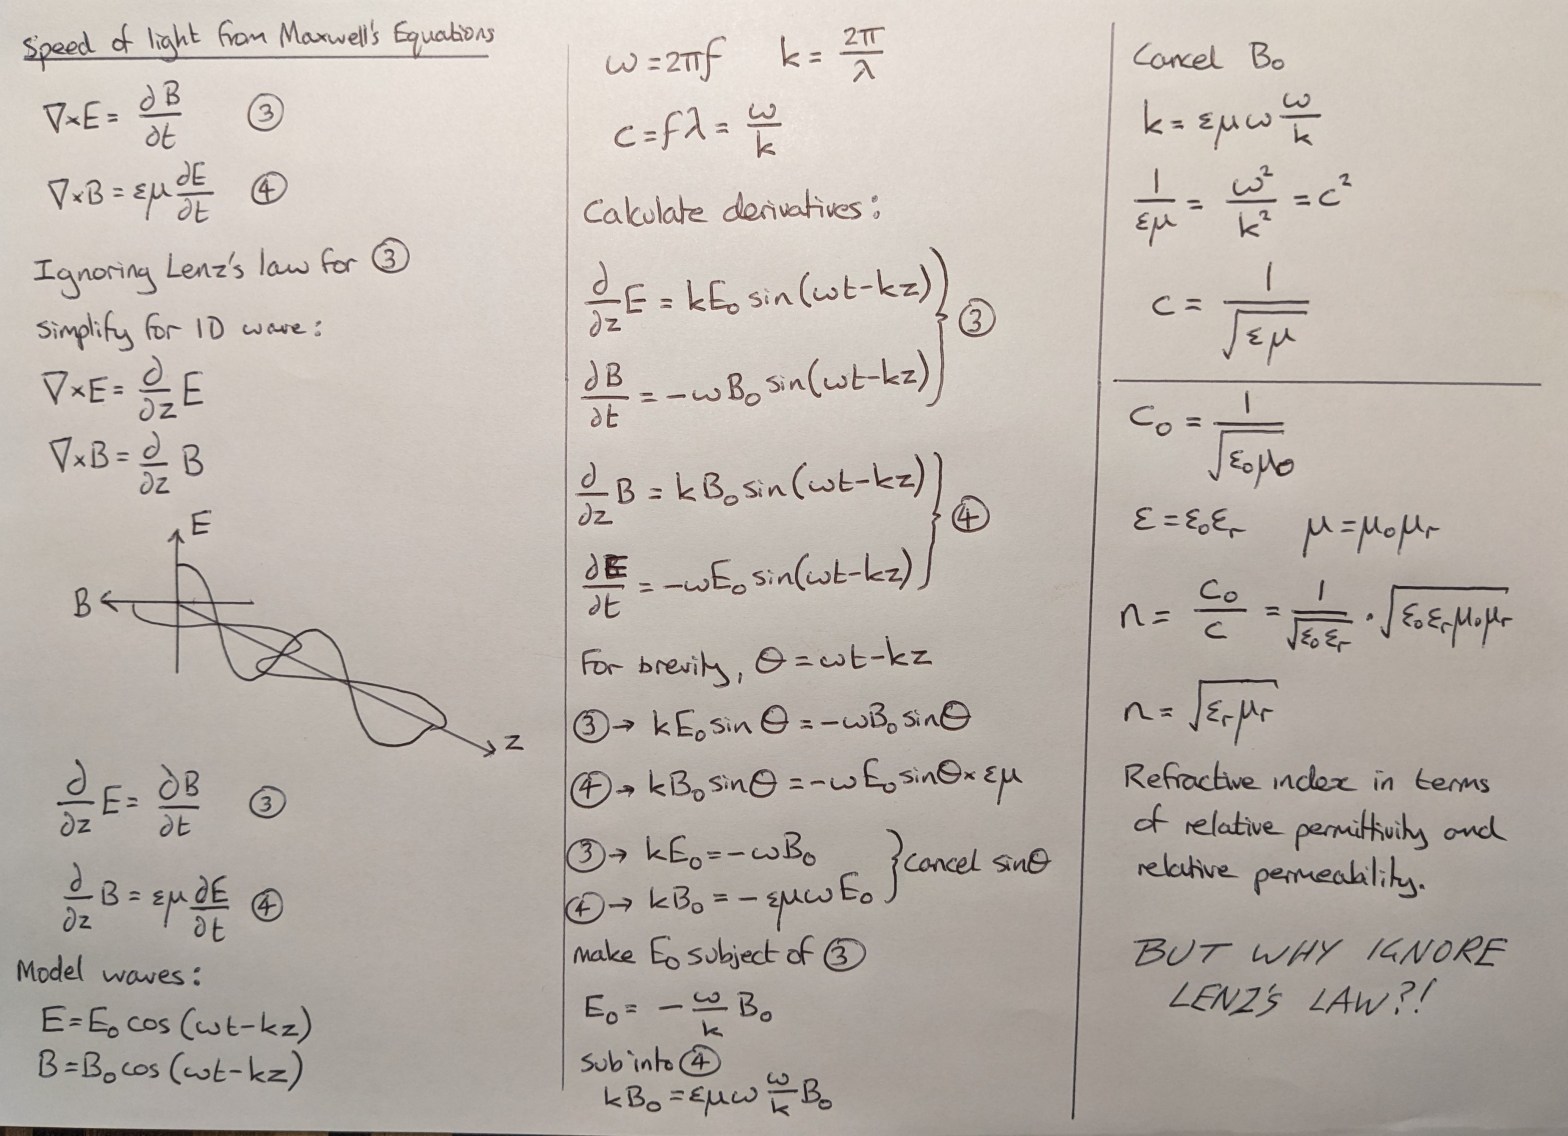 Speed of light from Maxwell's Equations
∇×E = ∂B/∂t ③
∇×B = εμ ∂E/∂t ④
Ignoring Lenz's law for ③
simplify for 1D wave:
∇×E = ∂/∂z E
∇×B = ∂/∂z B
E
B
z
∂/∂z E = ∂B/∂t ③
∂/∂z B = εμ ∂E/∂t ④
Model waves:
E = E₀ cos (ωt-kz)
B = B₀ cos (ωt-kz)
ω = 2πf k = 2π/λ
c = fλ = ω/k
Calculate derivatives:
∂/∂z E = kE₀ sin(ωt-kz) } ③
∂B/∂t = -ωB₀ sin(ωt-kz)
∂/∂z B = kB₀ sin(ωt-kz) } ④
∂E/∂t = -ωE₀ sin(ωt-kz)
For brevity, θ = ωt-kz
③→ kE₀ sin θ = -ωB₀ sinθ
④→ kB₀ sinθ = -ωE₀ sinθ × εμ
③→ kE₀ = -ωB₀ } cancel sinθ
④→ kB₀ = -εμωE₀
make E₀ subject of ③
E₀ = -ω/k B₀
sub into ④
kB₀ = εμω ω/k B₀
Cancel B₀
k = εμω ω/k
1/εμ = ω²/k² = c²
c = 1/√(εμ)
c₀ = 1/√(ε₀μ₀)
ε = ε₀εᵣ μ = μ₀μᵣ
n = c₀/c = 1/√(ε₀εᵣ) · √(ε₀εᵣμ₀μᵣ)
n = √(εᵣμᵣ)
Refractive index in terms
of relative permittivity and
relative permeability.
BUT WHY IGNORE
LENZ'S LAW?!